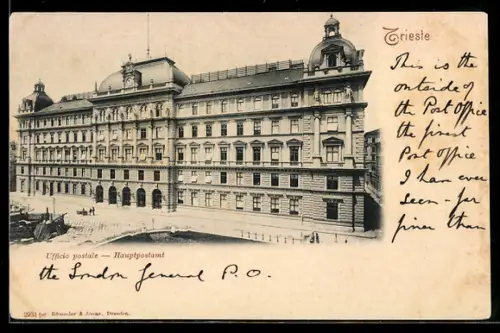 Trieste
This is the
outside of
the Post Office
the finest
Post Office
I have ever
seen - far
finer than
Ufficio postale — Hauptpostamt
the London General P.O.
Römmler & Jonas, Dresden.